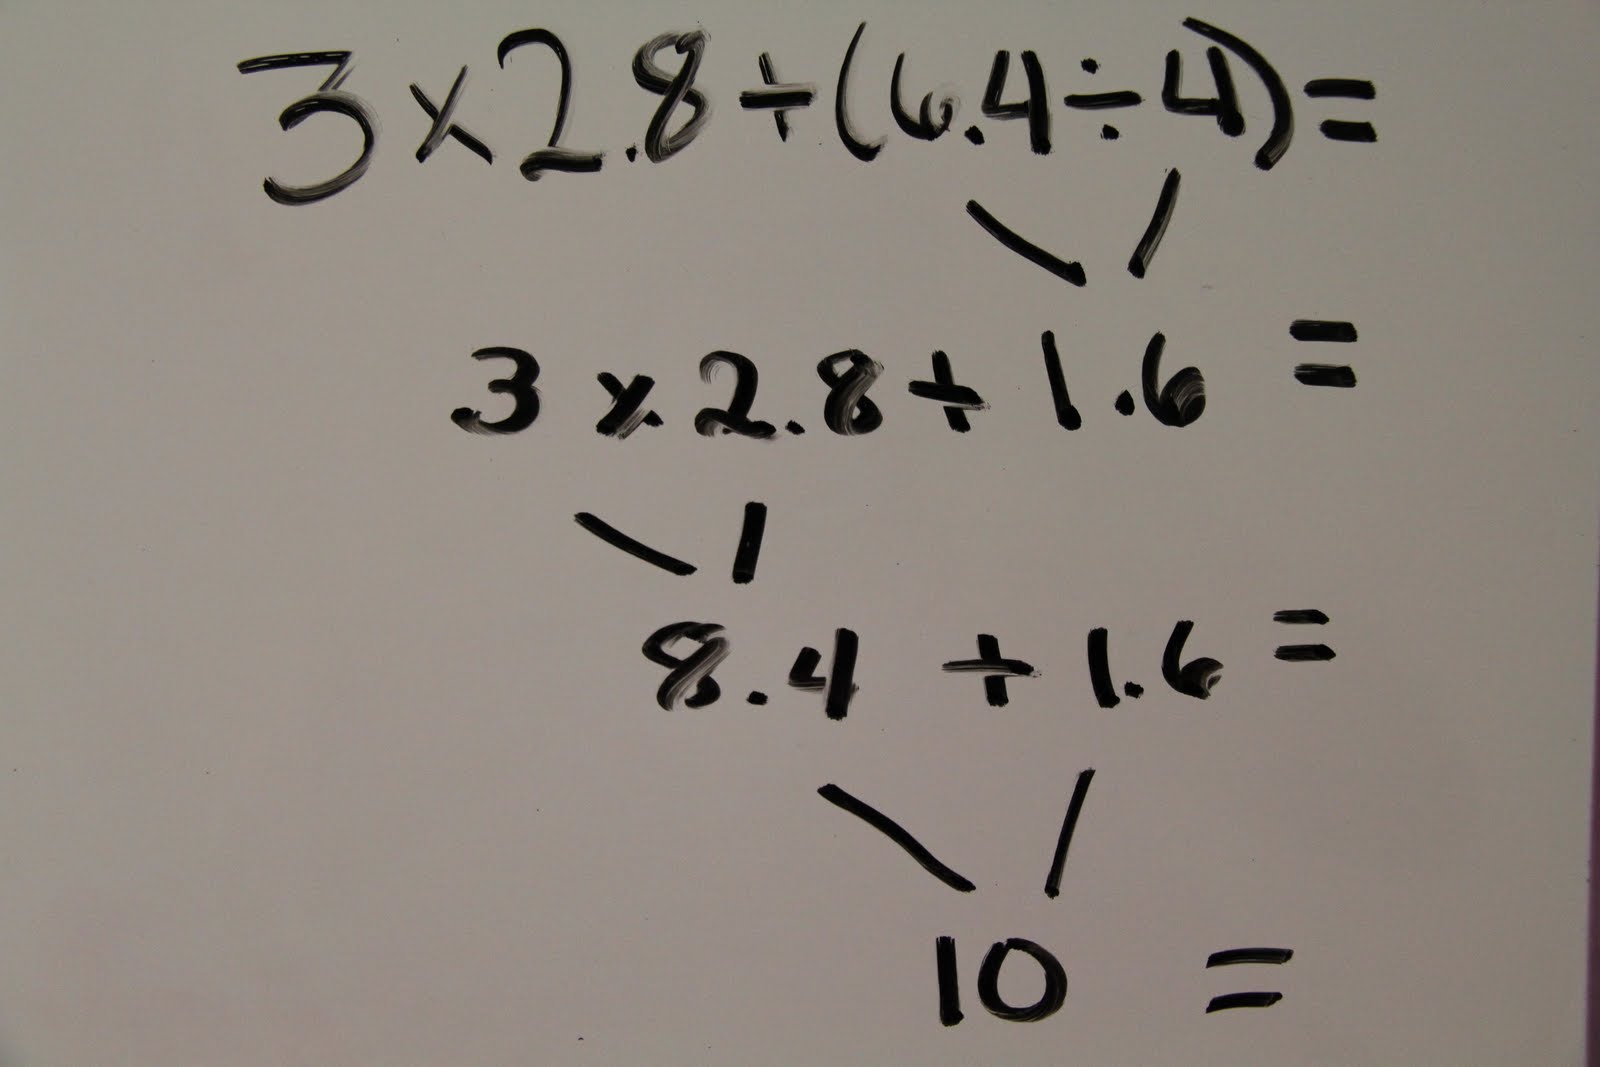 3 × 2.8 + (6.4 ÷ 4) =
3 × 2.8 + 1.6 =
8.4 + 1.6 =
10 =